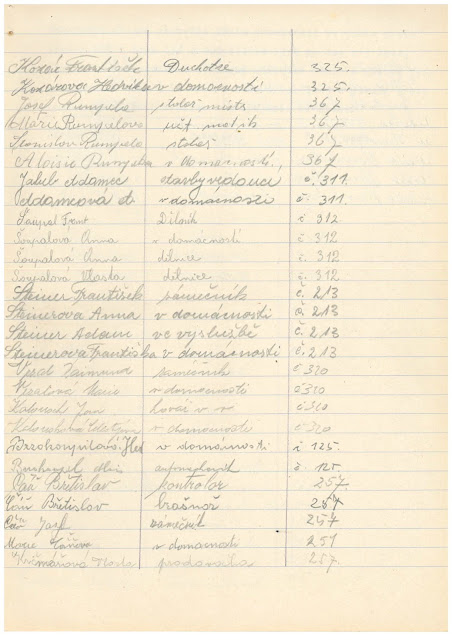 Kozár František Duchodce 325.
Kozárova Hedvika v domacnosti 325.
Josef Rumpela stolař mistr 367
Marie Rumpelova 367
Stanislav Rumpela stolař 367
Aloisie Rumpela v domacnosti, 367
Jakub Adamec stavbyvedoucí č. 311.
Adamcova v domácnosti č. 311.
Šoupal Frant Dělník č 312
Šoupalová Anna v domácnosti č 312
Šoupalová Anna dělnice č. 312
Šoupalová Vlasta dělnice č. 312
Steiner František zámečník č. 213
Steinerova Anna v domácnosti č. 213
Steiner Adam ve výslužbě č. 213
Steinerova Františka v domácnosti č. 213
zámečník č 320
Marie v domacnosti č 320
Jan horař v v č 320
v domacnosti č 320
v domácnosti č 125.
č 125.
Čáň Břetislav kontrolor 257
Čáň Břetislav brašnář 257
Čáň Josef zámečník 257
Marie Čáňova v domacnosti 257
Krčmářová Vlasta prodavačka 257.